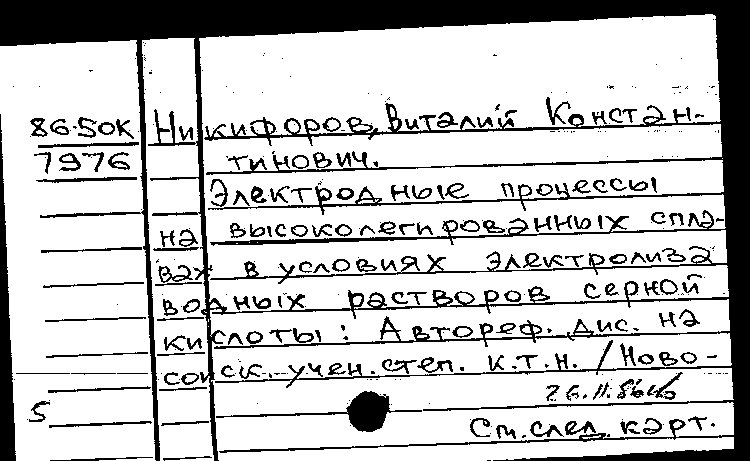 86-50К Никифоров, Виталий Констан-
7976 тинович.
Электродные процессы
на высоколегированных спла-
вах в условиях электролиза
водных растворов серной
кислоты: Автореф. дис. на
соиск. учен. степ. к.т.н. / Ново-
26.11.86
5
См. след. карт.